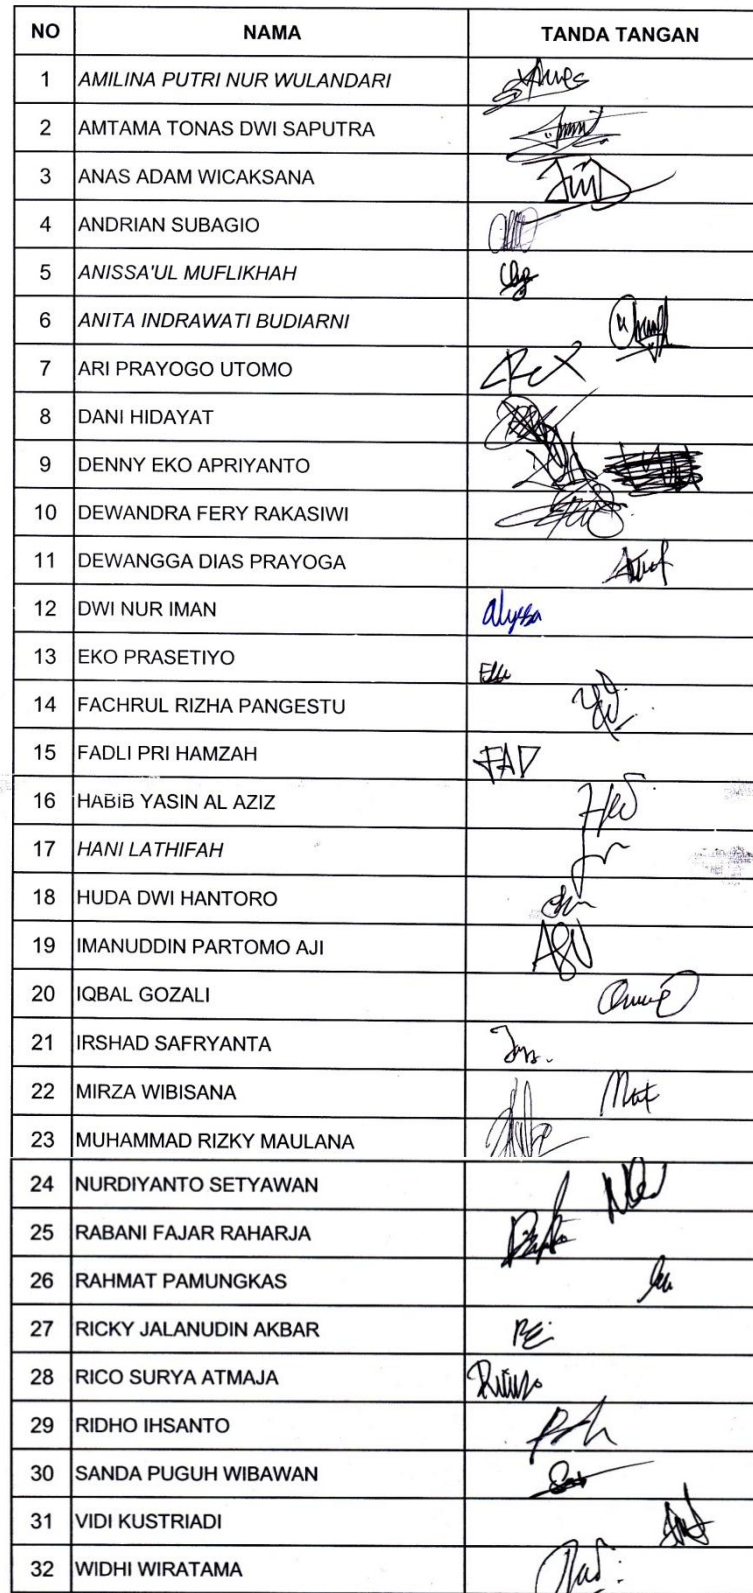 NO NAMA TANDA TANGAN
1 AMILINA PUTRI NUR WULANDARI
2 AMTAMA TONAS DWI SAPUTRA
3 ANAS ADAM WICAKSANA
4 ANDRIAN SUBAGIO
5 ANISSA'UL MUFLIKHAH
6 ANITA INDRAWATI BUDIARNI
7 ARI PRAYOGO UTOMO
8 DANI HIDAYAT
9 DENNY EKO APRIYANTO
10 DEWANDRA FERY RAKASIWI
11 DEWANGGA DIAS PRAYOGA
12 DWI NUR IMAN alyssa
13 EKO PRASETIYO
14 FACHRUL RIZHA PANGESTU
15 FADLI PRI HAMZAH FAD
16 HABIB YASIN AL AZIZ
17 HANI LATHIFAH
18 HUDA DWI HANTORO
19 IMANUDDIN PARTOMO AJI
20 IQBAL GOZALI
21 IRSHAD SAFRYANTA
22 MIRZA WIBISANA
23 MUHAMMAD RIZKY MAULANA
24 NURDIYANTO SETYAWAN
25 RABANI FAJAR RAHARJA
26 RAHMAT PAMUNGKAS
27 RICKY JALANUDIN AKBAR
28 RICO SURYA ATMAJA
29 RIDHO IHSANTO
30 SANDA PUGUH WIBAWAN
31 VIDI KUSTRIADI
32 WIDHI WIRATAMA